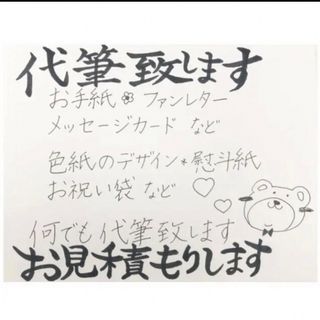 代筆致します
お手紙❀ファンレター
メッセージカード など
色紙のデザイン*熨斗紙
お祝い袋 など ♡♡
何でも代筆致します
お見積もりします